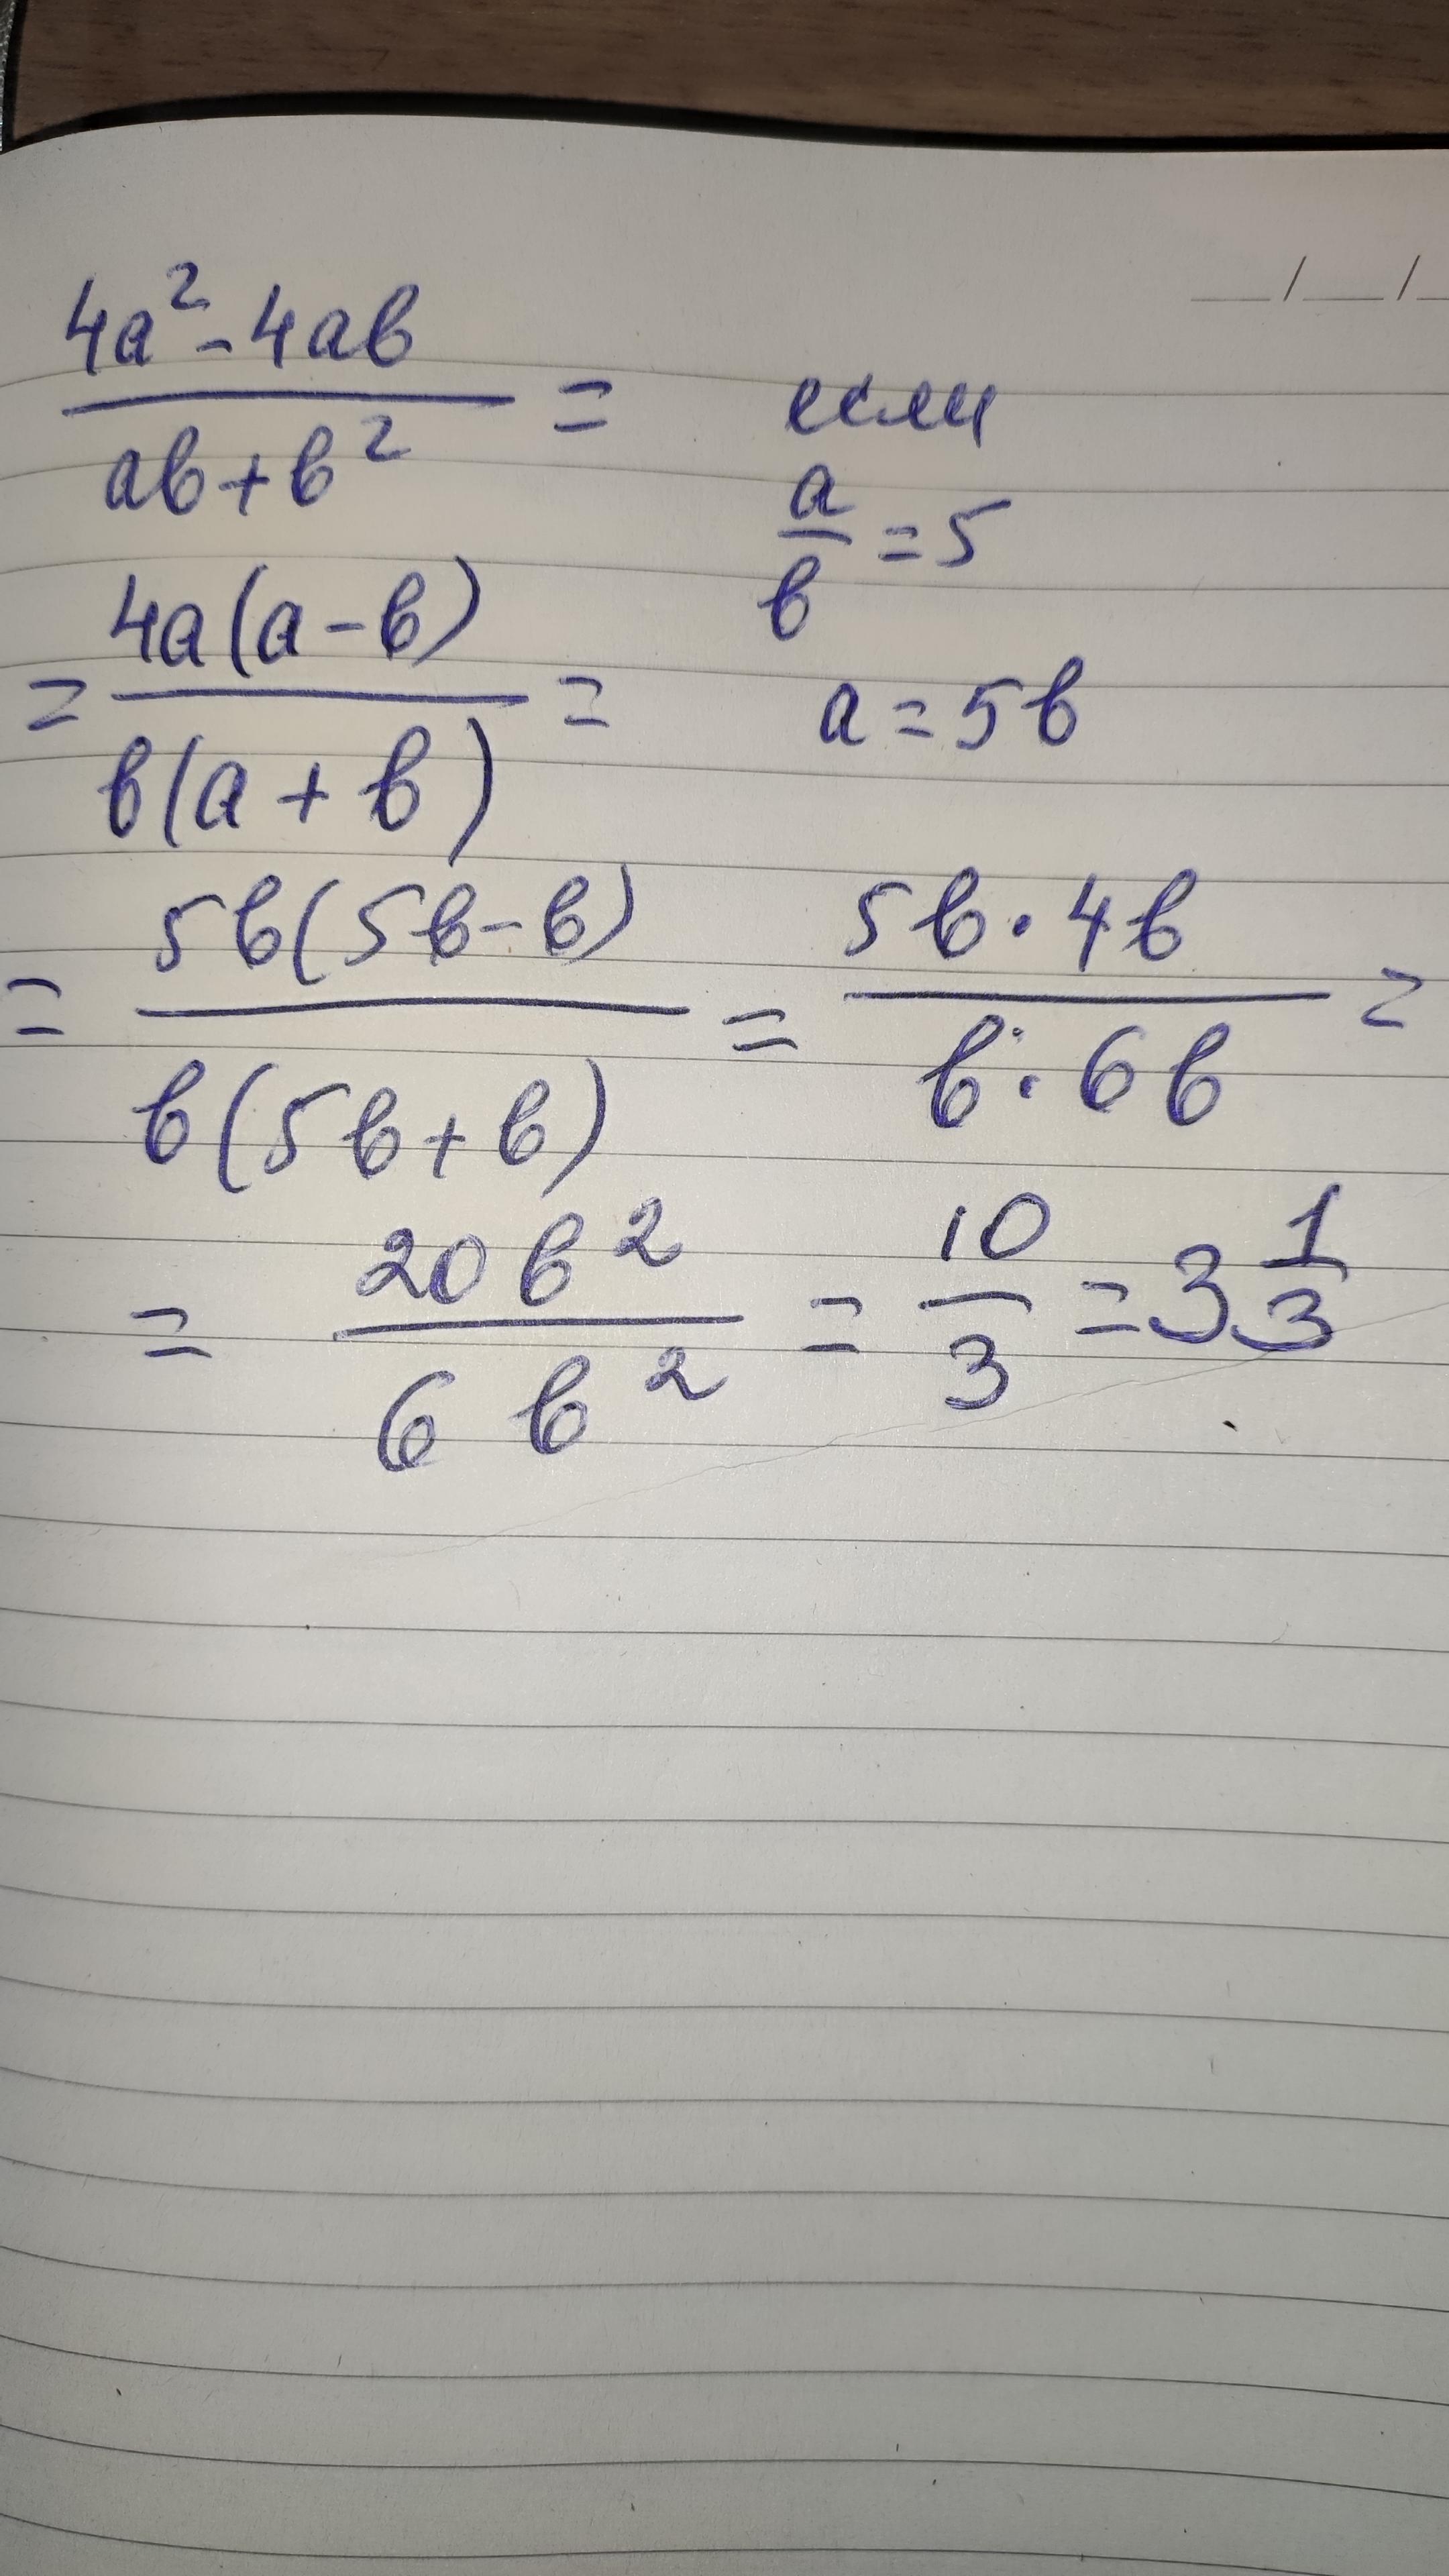 (4a² - 4ab)/(ab + b²) = если
a/b = 5
= 4a(a - b)/b(a + b) = a = 5b
= 5b(5b - b)/b(5b + b) = 5b · 4b/b · 6b =
= 20b²/6b² = 10/3 = 3 1/3